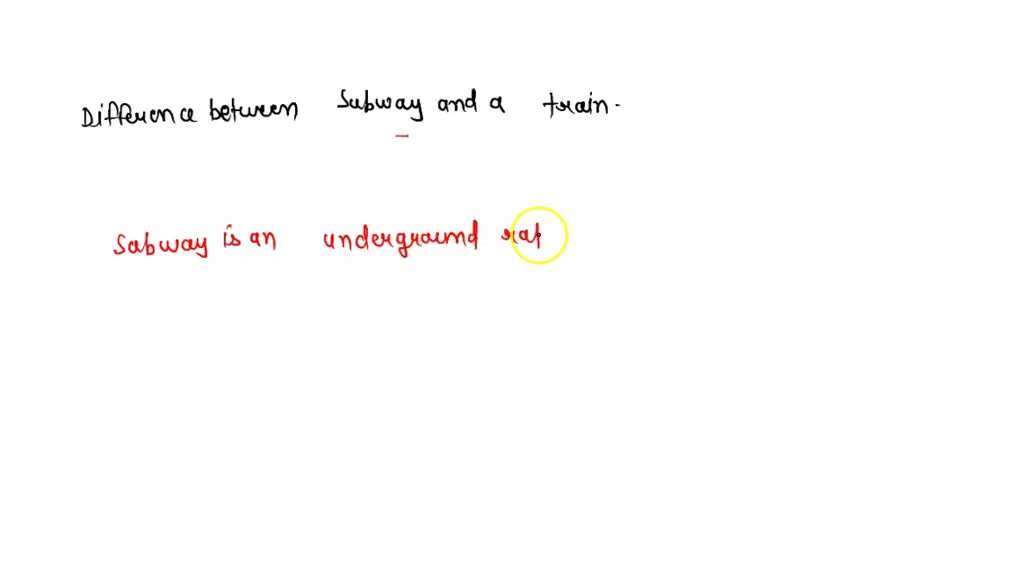 Difference between Subway and a train.
Subway is an underground